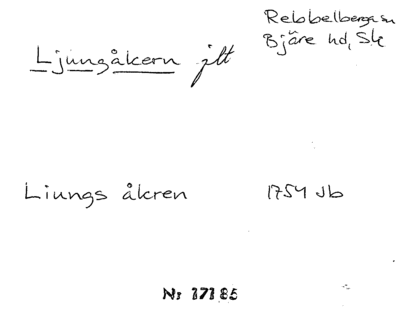 Rebbelberga sn
Bjäre hd, Sk
Ljungåkern jlt
Liungs åkren 1754 Jb
Nr 17185